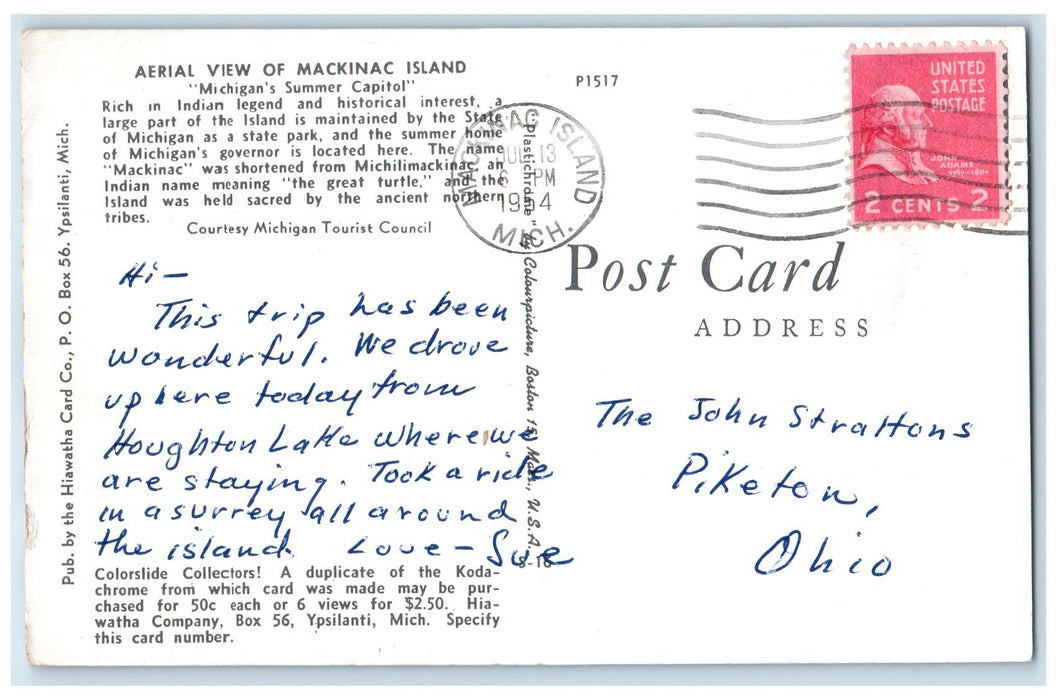 AERIAL VIEW OF MACKINAC ISLAND
"Michigan's Summer Capitol"
Rich in Indian legend and historical interest, a
large part of the Island is maintained by the State
of Michigan as a state park, and the summer home
of Michigan's governor is located here. The name
"Mackinac" was shortened from Michilimackinac, an
Indian name meaning "the great turtle," and the
Island was held sacred by the ancient northern
tribes.
Courtesy Michigan Tourist Council
Hi-
This trip has been
wonderful. We drove
up here today from
Houghton Lake where we
are staying. Took a ride
in a surrey all around
the island. Love - Sue
Colorslide Collectors! A duplicate of the Koda-
chrome from which card was made may be pur-
chased for 50c each or 6 views for $2.50. Hia-
watha Company, Box 56, Ypsilanti, Mich. Specify
this card number.
Pub. by the Hiawatha Card Co., P. O. Box 56. Ypsilanti, Mich.
"Plastichrome" by Colourpicture, Boston 15, Mass., U.S.A.
P1517
MACKINAC ISLAND
JUL 13
6 PM
1954
MICH.
UNITED
STATES
POSTAGE
JOHN
ADAMS
1797-1801
2 CENTS 2
Post Card
ADDRESS
The John Strattons
Piketon,
Ohio